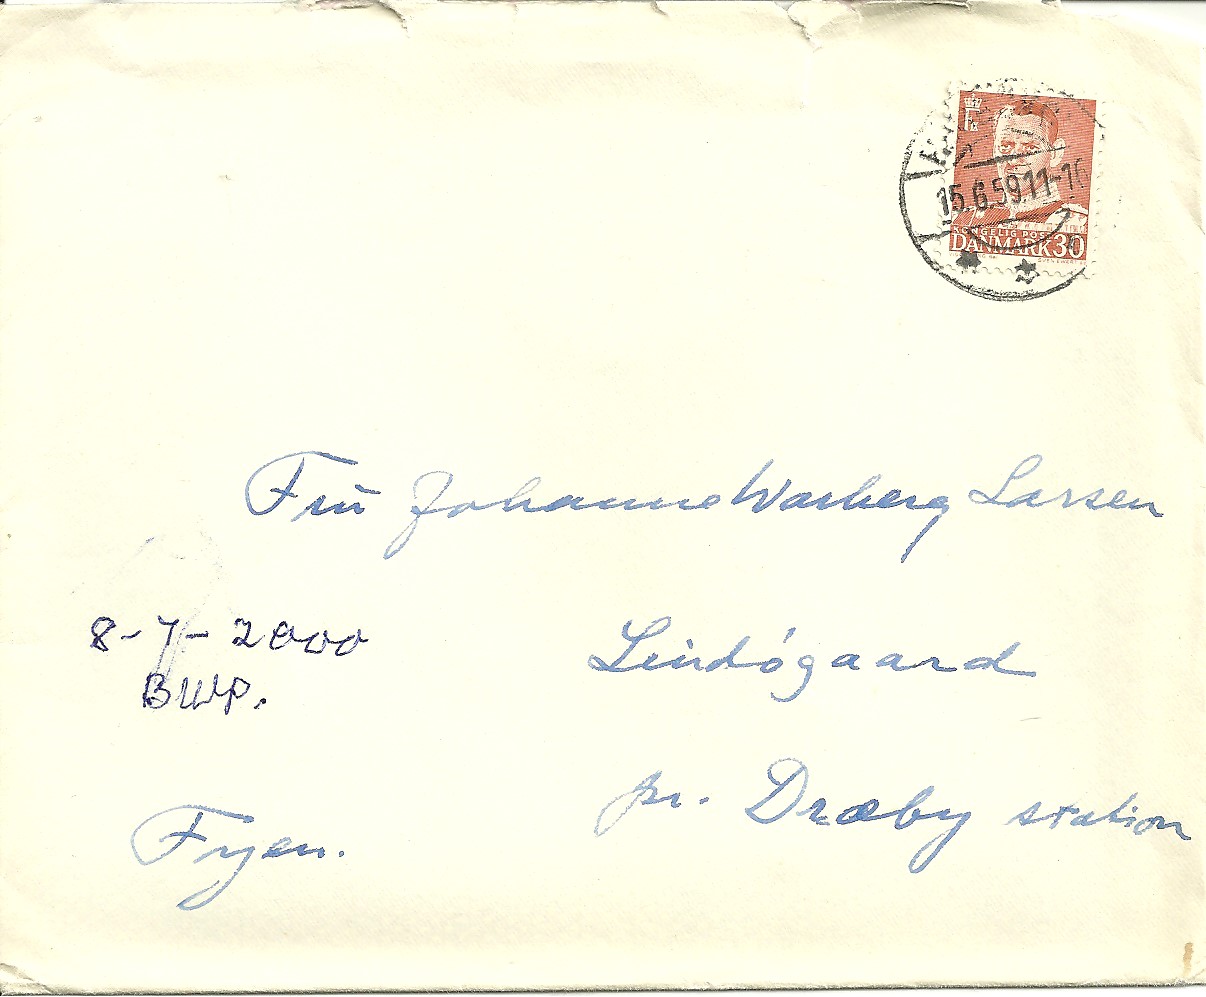 15.6.59.11-1
KONGELIG POST
DANMARK 30
Fru Johanne Warberg Larsen
Lindøgaard
8-7-2000
BWP.
pr. Dræby station
Fyen.